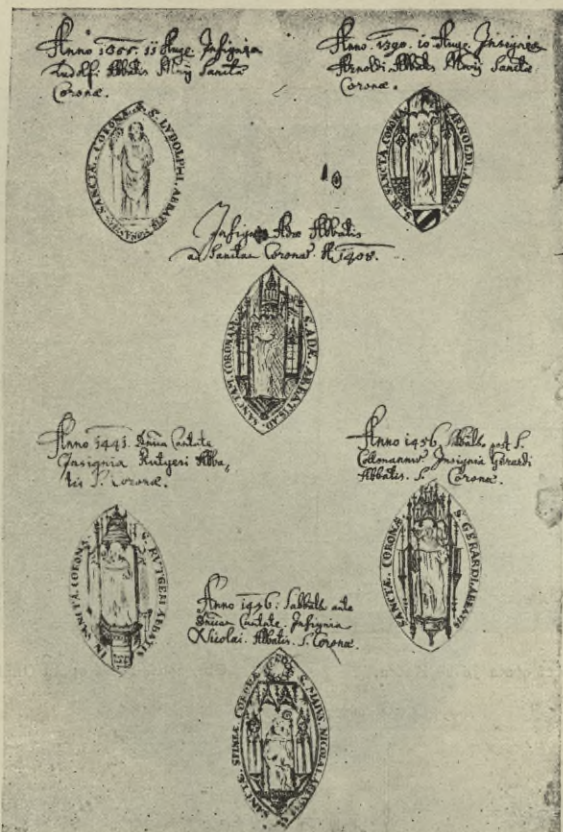 11 Aug. Insignia
Abbatis Sanctæ
Coronæ.
S. LVDOLPHI. ABBATIS SANCTÆ. CORONÆ
Anno 1390. 10 Aug. Insignia
Arnoldi Abbatis Sanctæ
Coronæ.
S. ARNOLDI. ABBATIS SANCTA CORONA
Insignia Adæ Abbatis
ad Sanctam Coronam A 1408.
S. ADÆ. ABBATIS. AD. SANCTAM. CORONAM
Anno 1441. Cantate
Insignia Rutgeri Abba,
tis S. Coronæ.
S. RUTGERI ABBATIS IN. SANCTA. CORONA
Anno 1456 Sabbath. post S.
Insignia Gerardi
Abbatis. S. Coronæ.
S. GERARDI. ABBATIS SANCTÆ. CORONÆ
Anno 1456: Sabbath. ante
Cantate. Insignia
Nicolai. Abbatis. S. Coronæ.
NICOLAI. ABBATIS SANCTÆ SPINEÆ CORONÆ